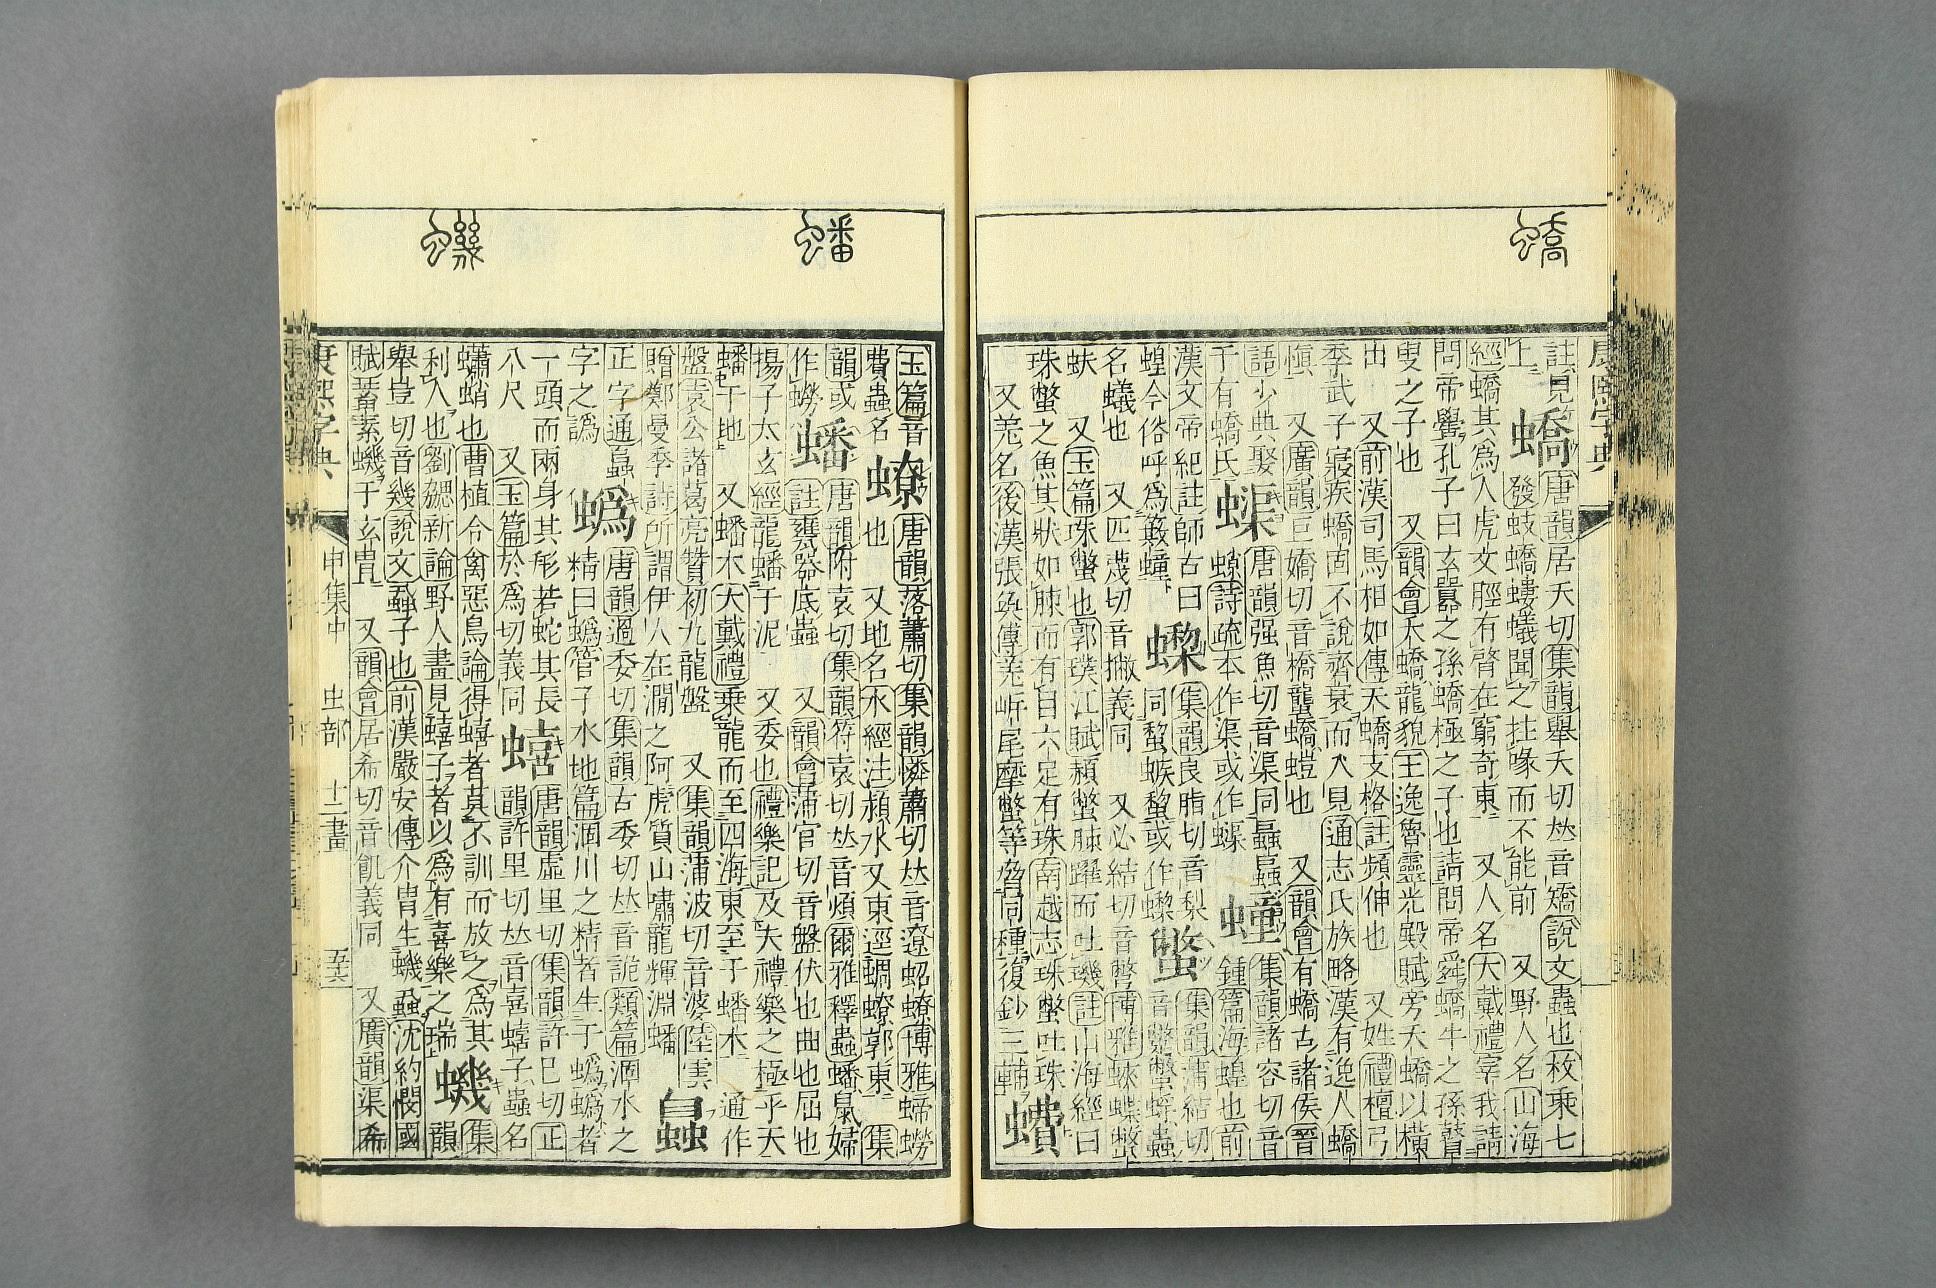 蟜
註見
上 蟜 唐韻居夭切集韻舉夭切𠀤音矯說文蟲也枚乗七
發蚑蟜螻蟻聞之拄喙而不能前 又野人名山海
經蟜其爲人虎文脛有䏿在窮奇東 又人名大戴禮宰我請
問帝嚳孔子曰玄囂之孫蟜極之子也請問帝舜蟜牛之孫瞽
叟之子也 又韻會夭蟜龍貌王逸魯靈光殿賦旁夭蟜以橫
出 又前漢司馬相如傳夭蟜支格註頻伸也 又姓禮檀弓
季武子寢疾蟜固不說齊衰而入見通志氏族略漢有逸人蟜
愼 又廣韻巨嬌切音橋蠪蟜螘也 又韻會有蟜古諸侯晉
語少典娶
于有蟜氏 𧎾 唐韻强魚切音渠同蟲 蟲 𧑆 集韻諸容切音
蜋詩疏本作渠或作𧎾 鍾篇海蝗也前
漢文帝紀註師古曰
蝗今俗呼爲簸蝩 䗍 集韻良脂切音梨 蟞 集韻蒲結切
同蟍 或作蟍 音蹩 蟞蜉蟲
名蟻也 又匹蔑切音撇義同 又必結切音𢐳博雅蛷蝶蟞
蚨 又玉篇珠蟞也郭璞江賦赬蟞胏躍而吐璣註山海經曰
珠蟞之魚其狀如胏而有目六足有珠南越志珠蟞吐珠
又羌名後漢張奐傳 摩蟞等脅同種復鈔三輔 蟦
蟠
蟣
玉篇音
費蟲名 蟟 唐韻落蕭切集韻憐蕭切𠀤音遼蛁蟟博雅蝭蟧
也 又地名水經注潁水又東逕蜩蟟郭東 集
韻或
作蟧 蟠 唐韻附袁切集韻符袁切𠀤音煩爾雅釋蟲蟠鼠婦
註甕器底蟲 又韻會蒲官切音盤伏也曲也屈也
揚子太玄經龍蟠于泥 又委也禮樂記及夫禮樂之極乎天
蟠于地 又蟠木大戴禮乗龍而至四海東至于蟠木 通作
盤袁公諸葛亮贊初九龍盤 又集韻蒲波切音婆陸雲
贈鄭曼季詩所謂伊人在澗之阿虎質山嘯龍輝淵蟠
正字通蟲
字之譌 蟡 唐韻過委切集韻古委切𠀤音詭類篇涸水之
精曰蟡管子水地篇涸川之精者生于蟡蟡者
一頭而兩身其形若蛇其長
八尺 又玉篇於爲切義同 蟢 唐韻虛里切集韻許已切正
韻許里切𠀤音喜蟢子蟲名
蠨蛸也曹植令禽惡鳥論得蟢者莫不訓而放之爲其
利人也劉勰新論野人晝見蟢子者以爲有喜樂之瑞 蟣 集
韻
舉豈切音幾說文蝨子也前漢嚴安傳介冑生蟣蝨沈約憫國
賦蓄素蟣于玄冑 又韻會居希切音飢義同 又廣韻渠希
康熙字典 申集中 虫部 十二畫 五六